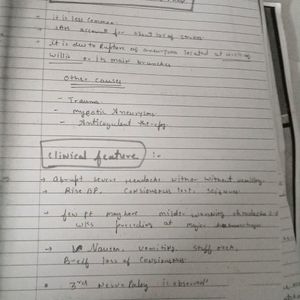 → it is less common
→ SAH account for about 10% of stroke
→ It is due to Rupture of aneurysm located at circle of
willis or its main branches
Other causes
- Trauma
- mycotic Aneurysm
- Anticoagulant therapy
Clinical feature :-
→ Abrupt severe headache with or without vomiting
→ Rise BP, Consciousness lost, seizure
→ few pt may have warning
preceding at major
→ Nausea, vomiting, stiff neck,
loss of Consciousness
→ 3rd Nerve Palsy is observed